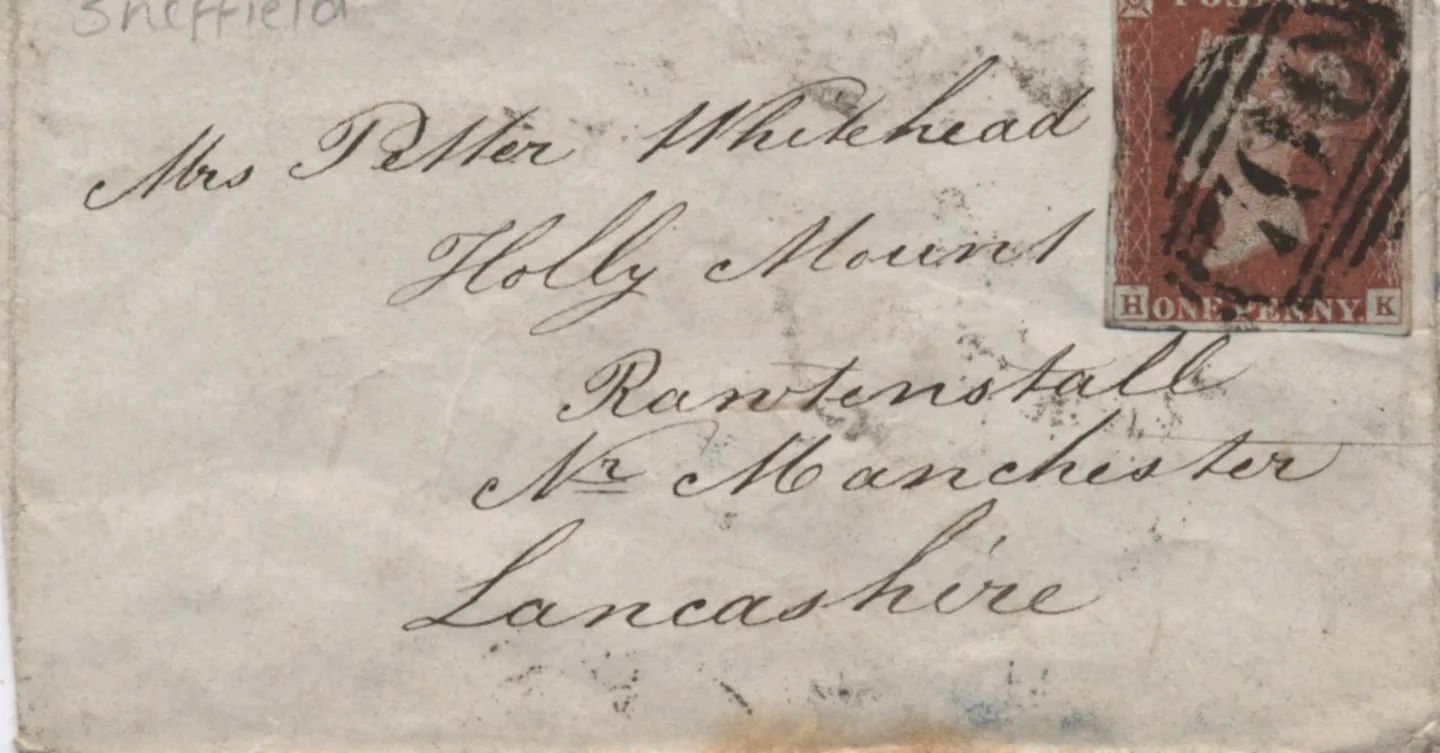 Sheffield
POSTAGE
Mrs Petter Whitehead
Holly Mount
H ONE PENNY. K
Rawtenstall
Nr Manchester
Lancashire